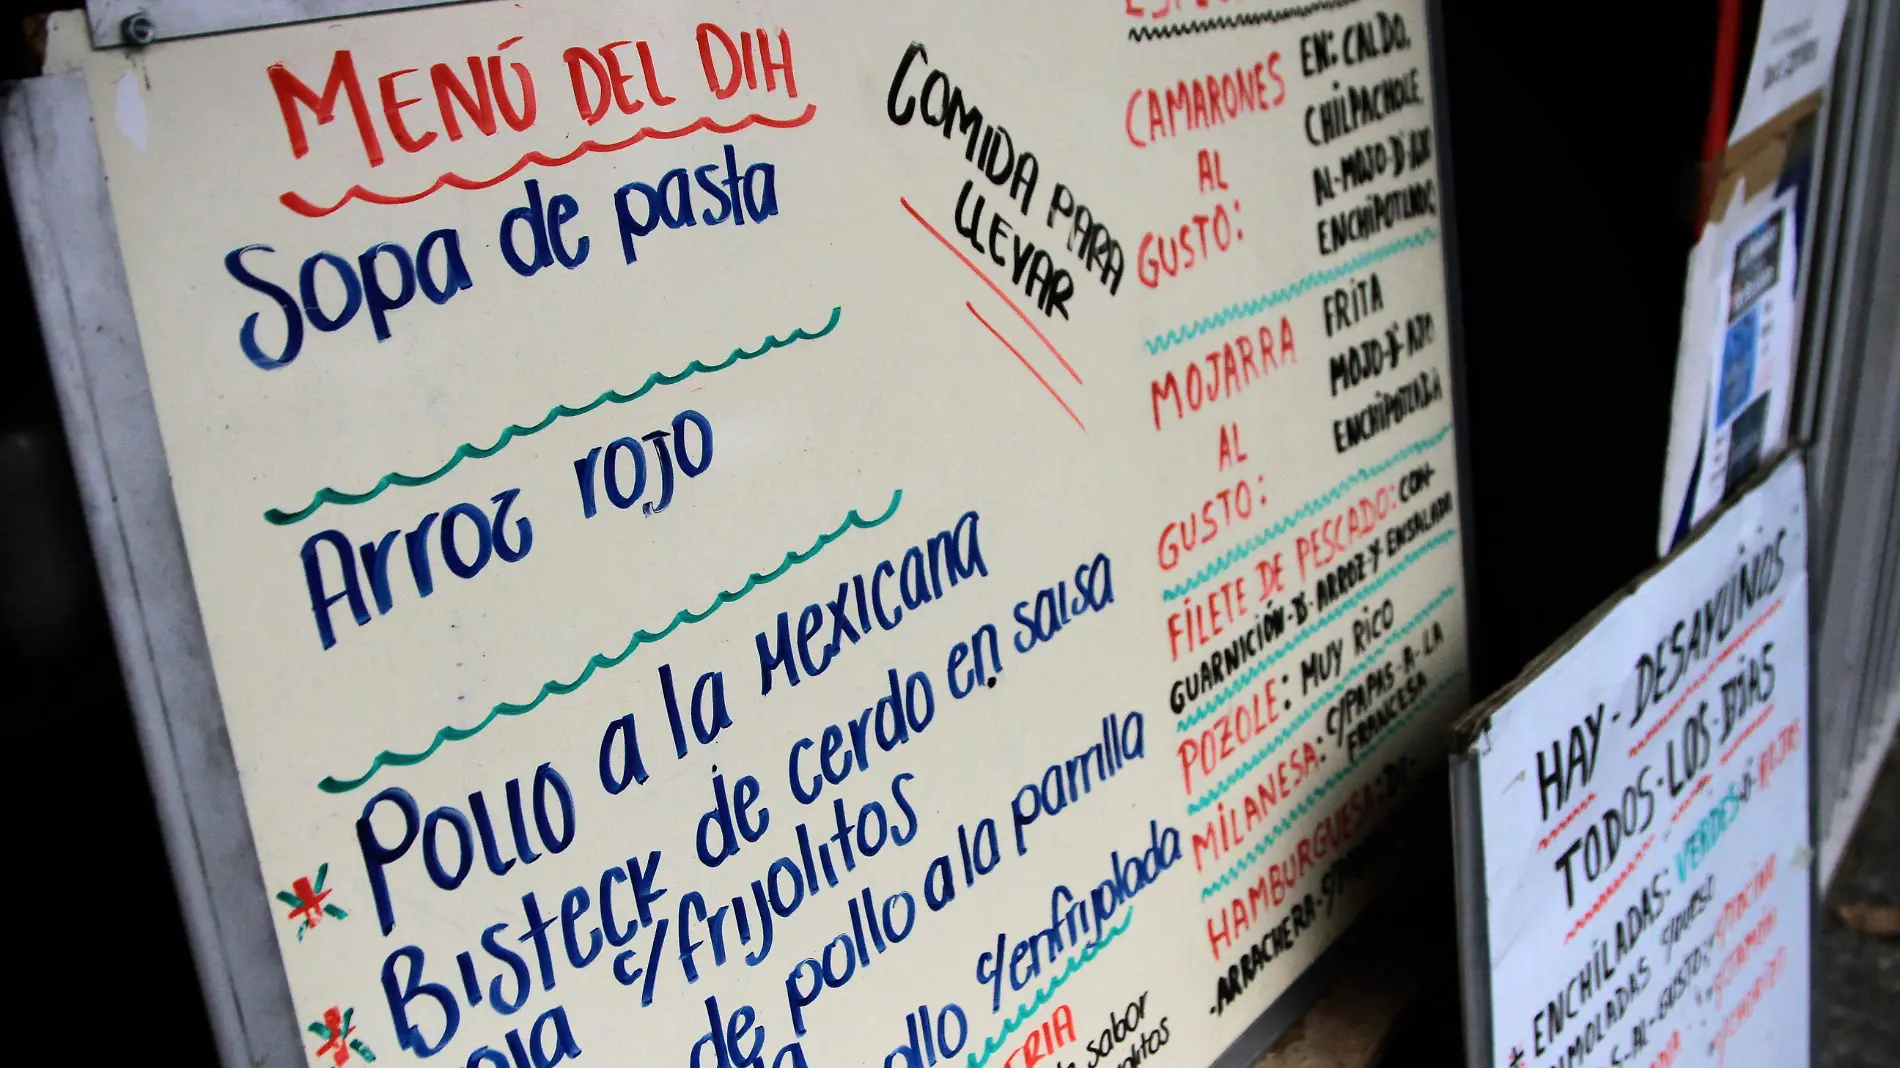 MENÚ DEL DIA
Sopa de pasta
Arroz rojo
Pollo a la Mexicana
Bisteck de cerdo en salsa
roja c/frijolitos
de pollo a la parrilla
pollo c/enfrijolada
COMIDA PARA
LLEVAR
CAMARONES
AL
GUSTO:
EN: CALDO,
CHILPACHOLE,
AL-MOJO-D-AJO
MOJARRA
AL
GUSTO:
FRITA
MOJO-D-AJO
ENCHIPOTLADA
FILETE DE PESCADO: CON-
GUARNICIÓN-D-ARROZ-Y-ENSALADA
POZOLE: MUY RICO
MILANESA: C/PAPAS-A-LA
FRANCESA
HAMBURGUESA: DE-
ARRACHERA-
de sabor
HAY-DESAYUNOS
TODOS-LOS-DIAS
ENCHILADAS: VERDES-O-ROJAS
C/QUESO
S-AL-GUSTO: C/TOCINO
C/JAMÓN
C/CHORIZO